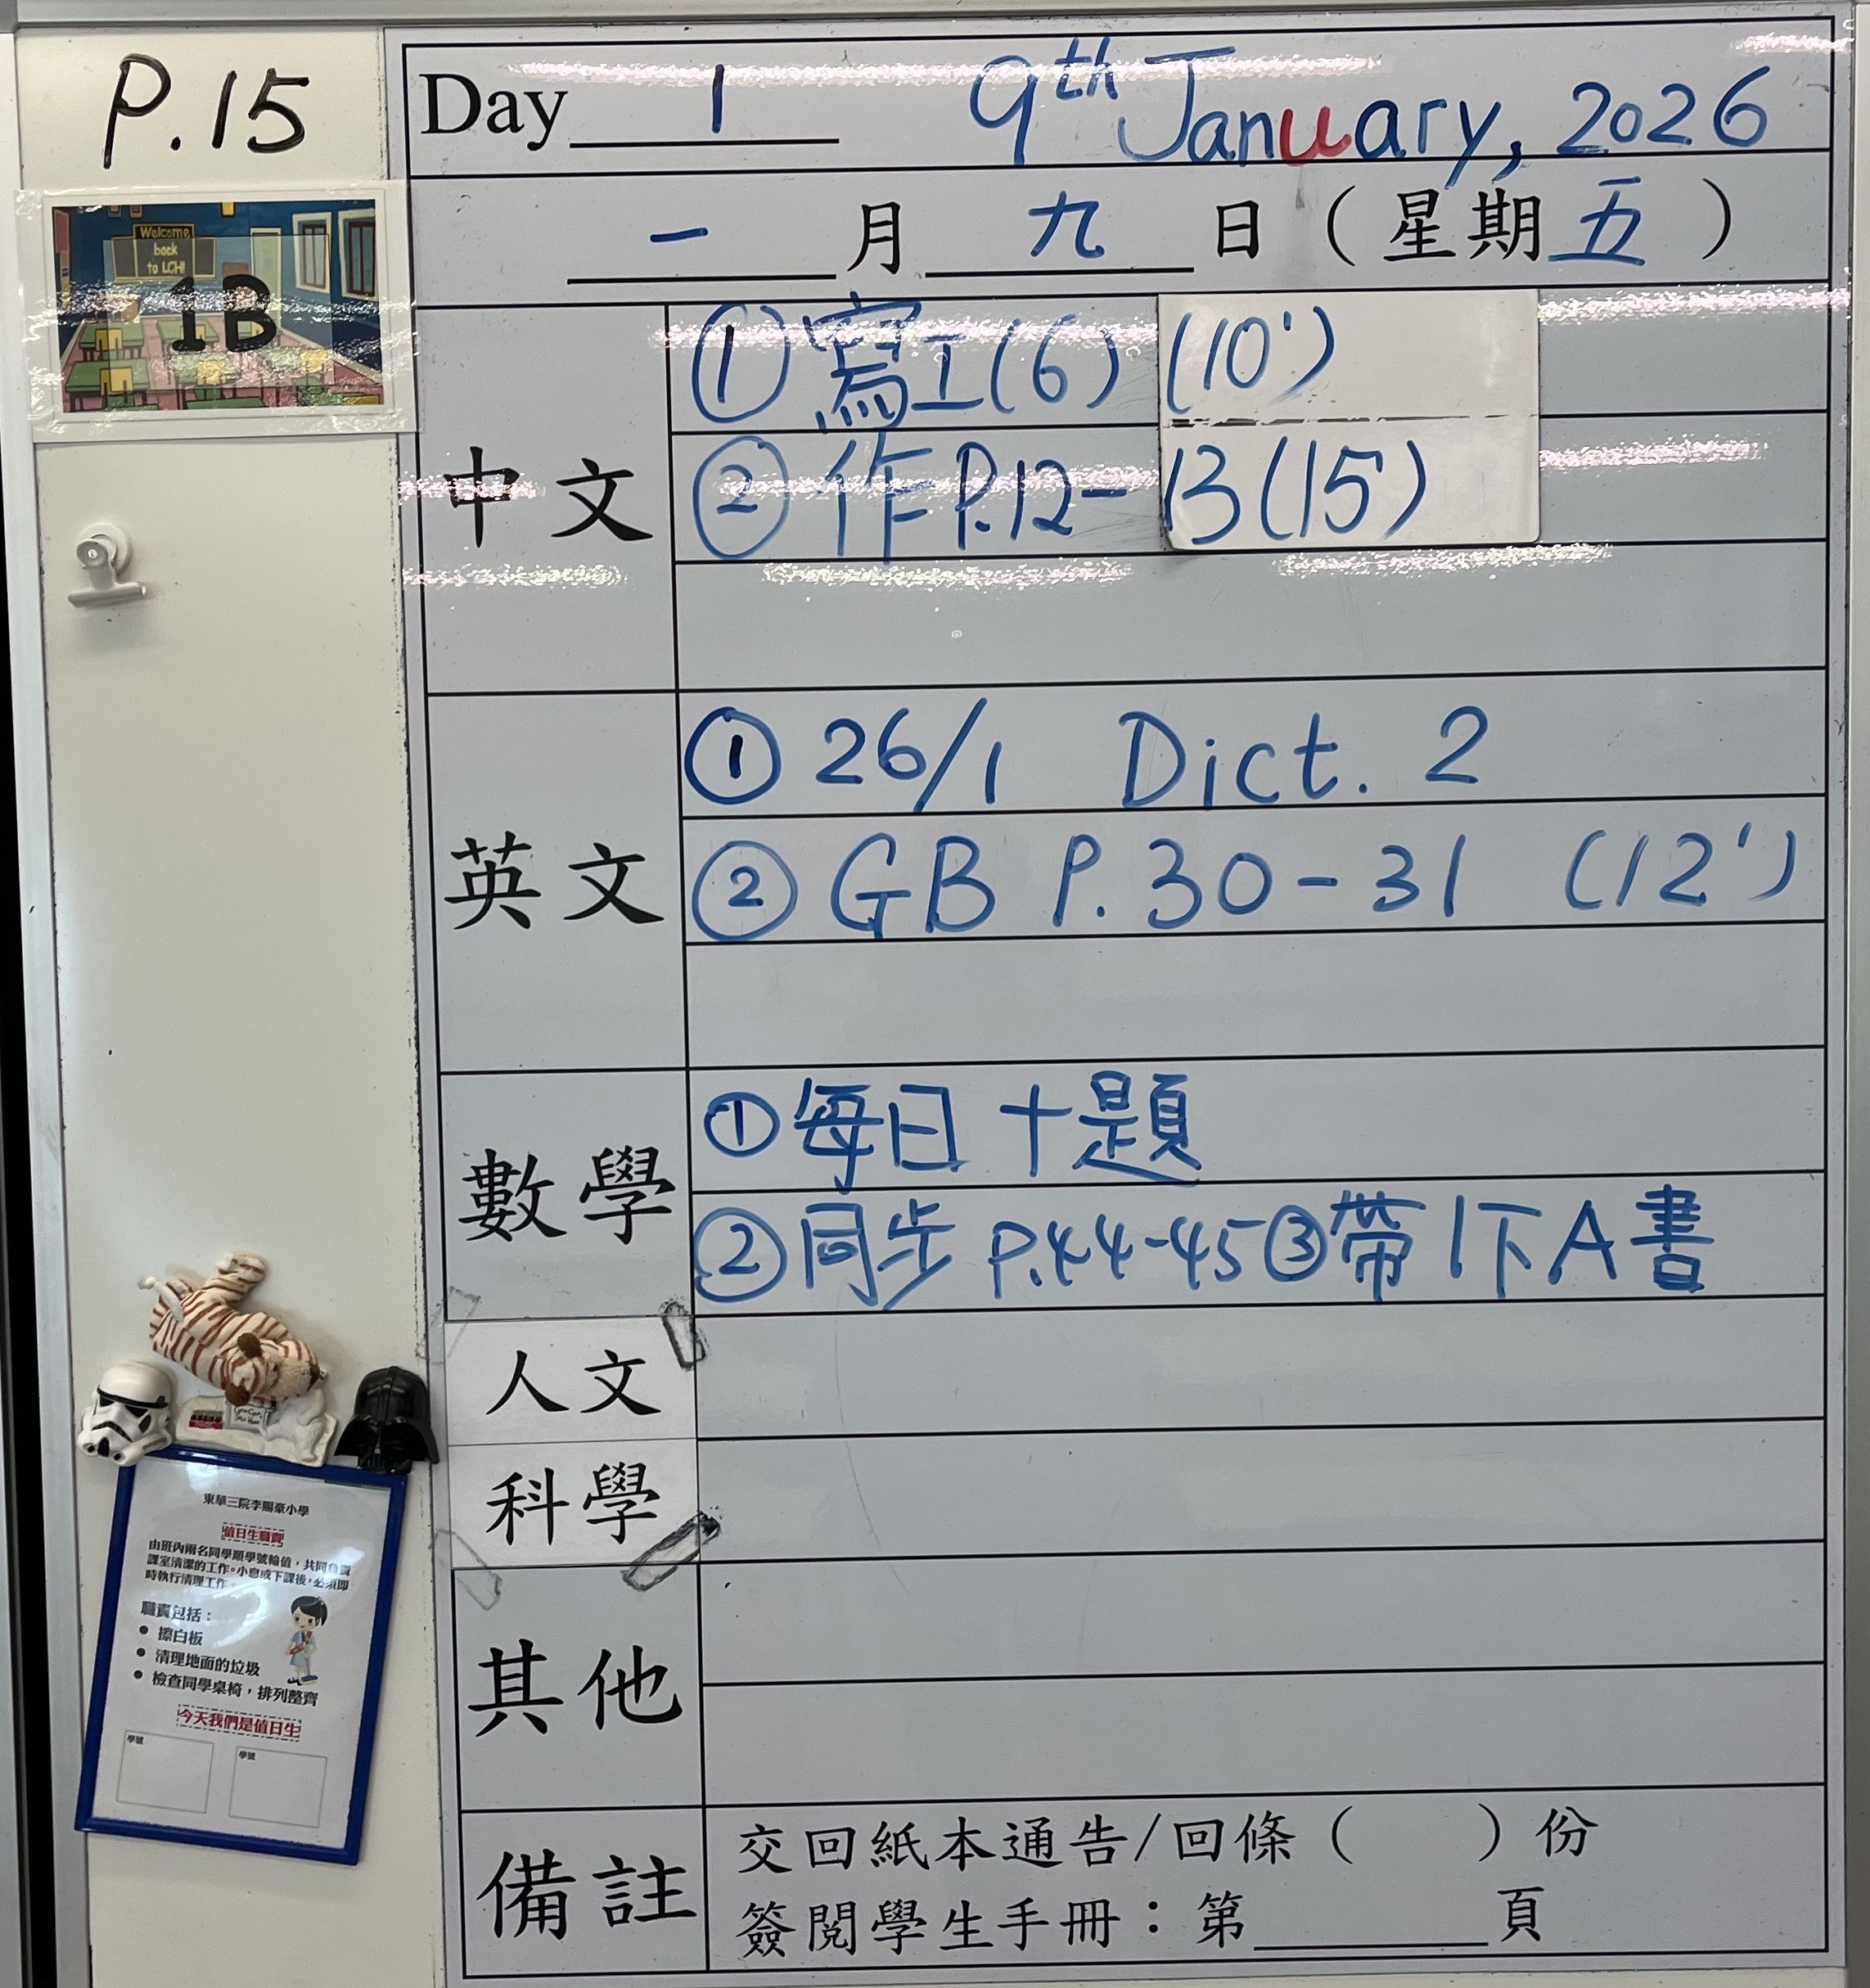 P.15
Day 1 9th January, 2026
一月九日（星期五）
Welcome
back
to LCH!
1B
中文
① 寫工(6) (10')
② 作P.12-13(15')
英文
① 26/1 Dict. 2
② GB P.30-31 (12')
數學
① 每日十題
② 同步 P.44-45 ③ 帶1下A書
人文
科學
其他
備註
交回紙本通告/回條（ ）份
簽閱學生手冊：第____頁
東華三院李賜豪小學
值日生職責
由班內兩名同學順學號輪值，共同負責
課室清潔的工作。小息或下課後，必須即
時執行清理工作。
職責包括：
● 擦白板
● 清理地面的垃圾
● 檢查同學桌椅，排列整齊
今天我們是值日生
學號 學號